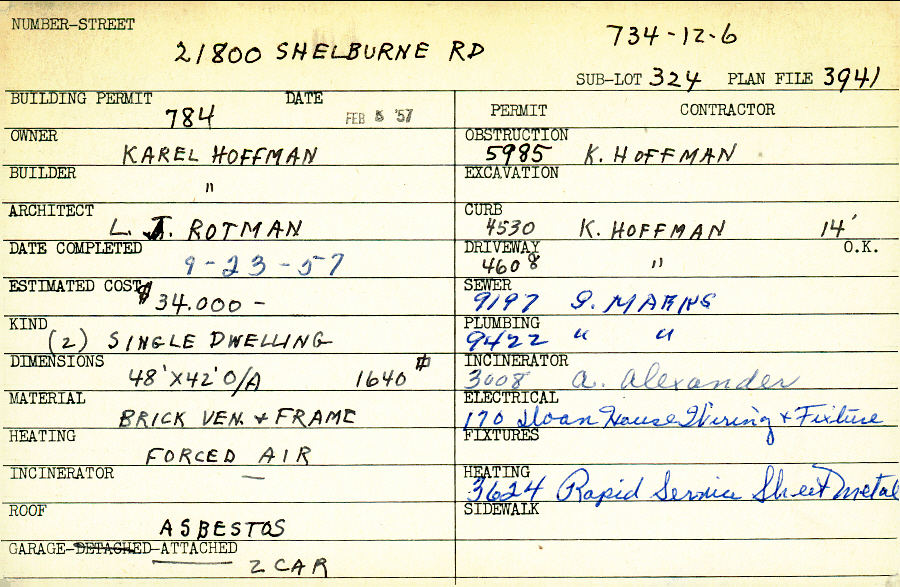 NUMBER-STREET
21800 SHELBURNE RD
734-12-6
SUB-LOT 324 PLAN FILE 3941
BUILDING PERMIT DATE
784 FEB 5 '57
OWNER
KAREL HOFFMAN
BUILDER
"
ARCHITECT
L. J. ROTMAN
DATE COMPLETED
9-23-57
ESTIMATED COST
$34.000 -
KIND
(2) SINGLE DWELLING
DIMENSIONS
48'X42' O/A 1640 #
MATERIAL
BRICK VEN. & FRAME
HEATING
FORCED AIR
INCINERATOR
—
ROOF
ASBESTOS
GARAGE-DETACHED-ATTACHED
2 CAR
PERMIT CONTRACTOR
OBSTRUCTION
5985 K. HOFFMAN
EXCAVATION
CURB
4530 K. HOFFMAN 14'
DRIVEWAY O.K.
4608 "
SEWER
9197 S. MARKS
PLUMBING
9422 " "
INCINERATOR
3008 A. Alexander
ELECTRICAL
170 Sloan House Wiring & Fixture
FIXTURES
HEATING
3624 Rapid Service Sheet Metal
SIDEWALK